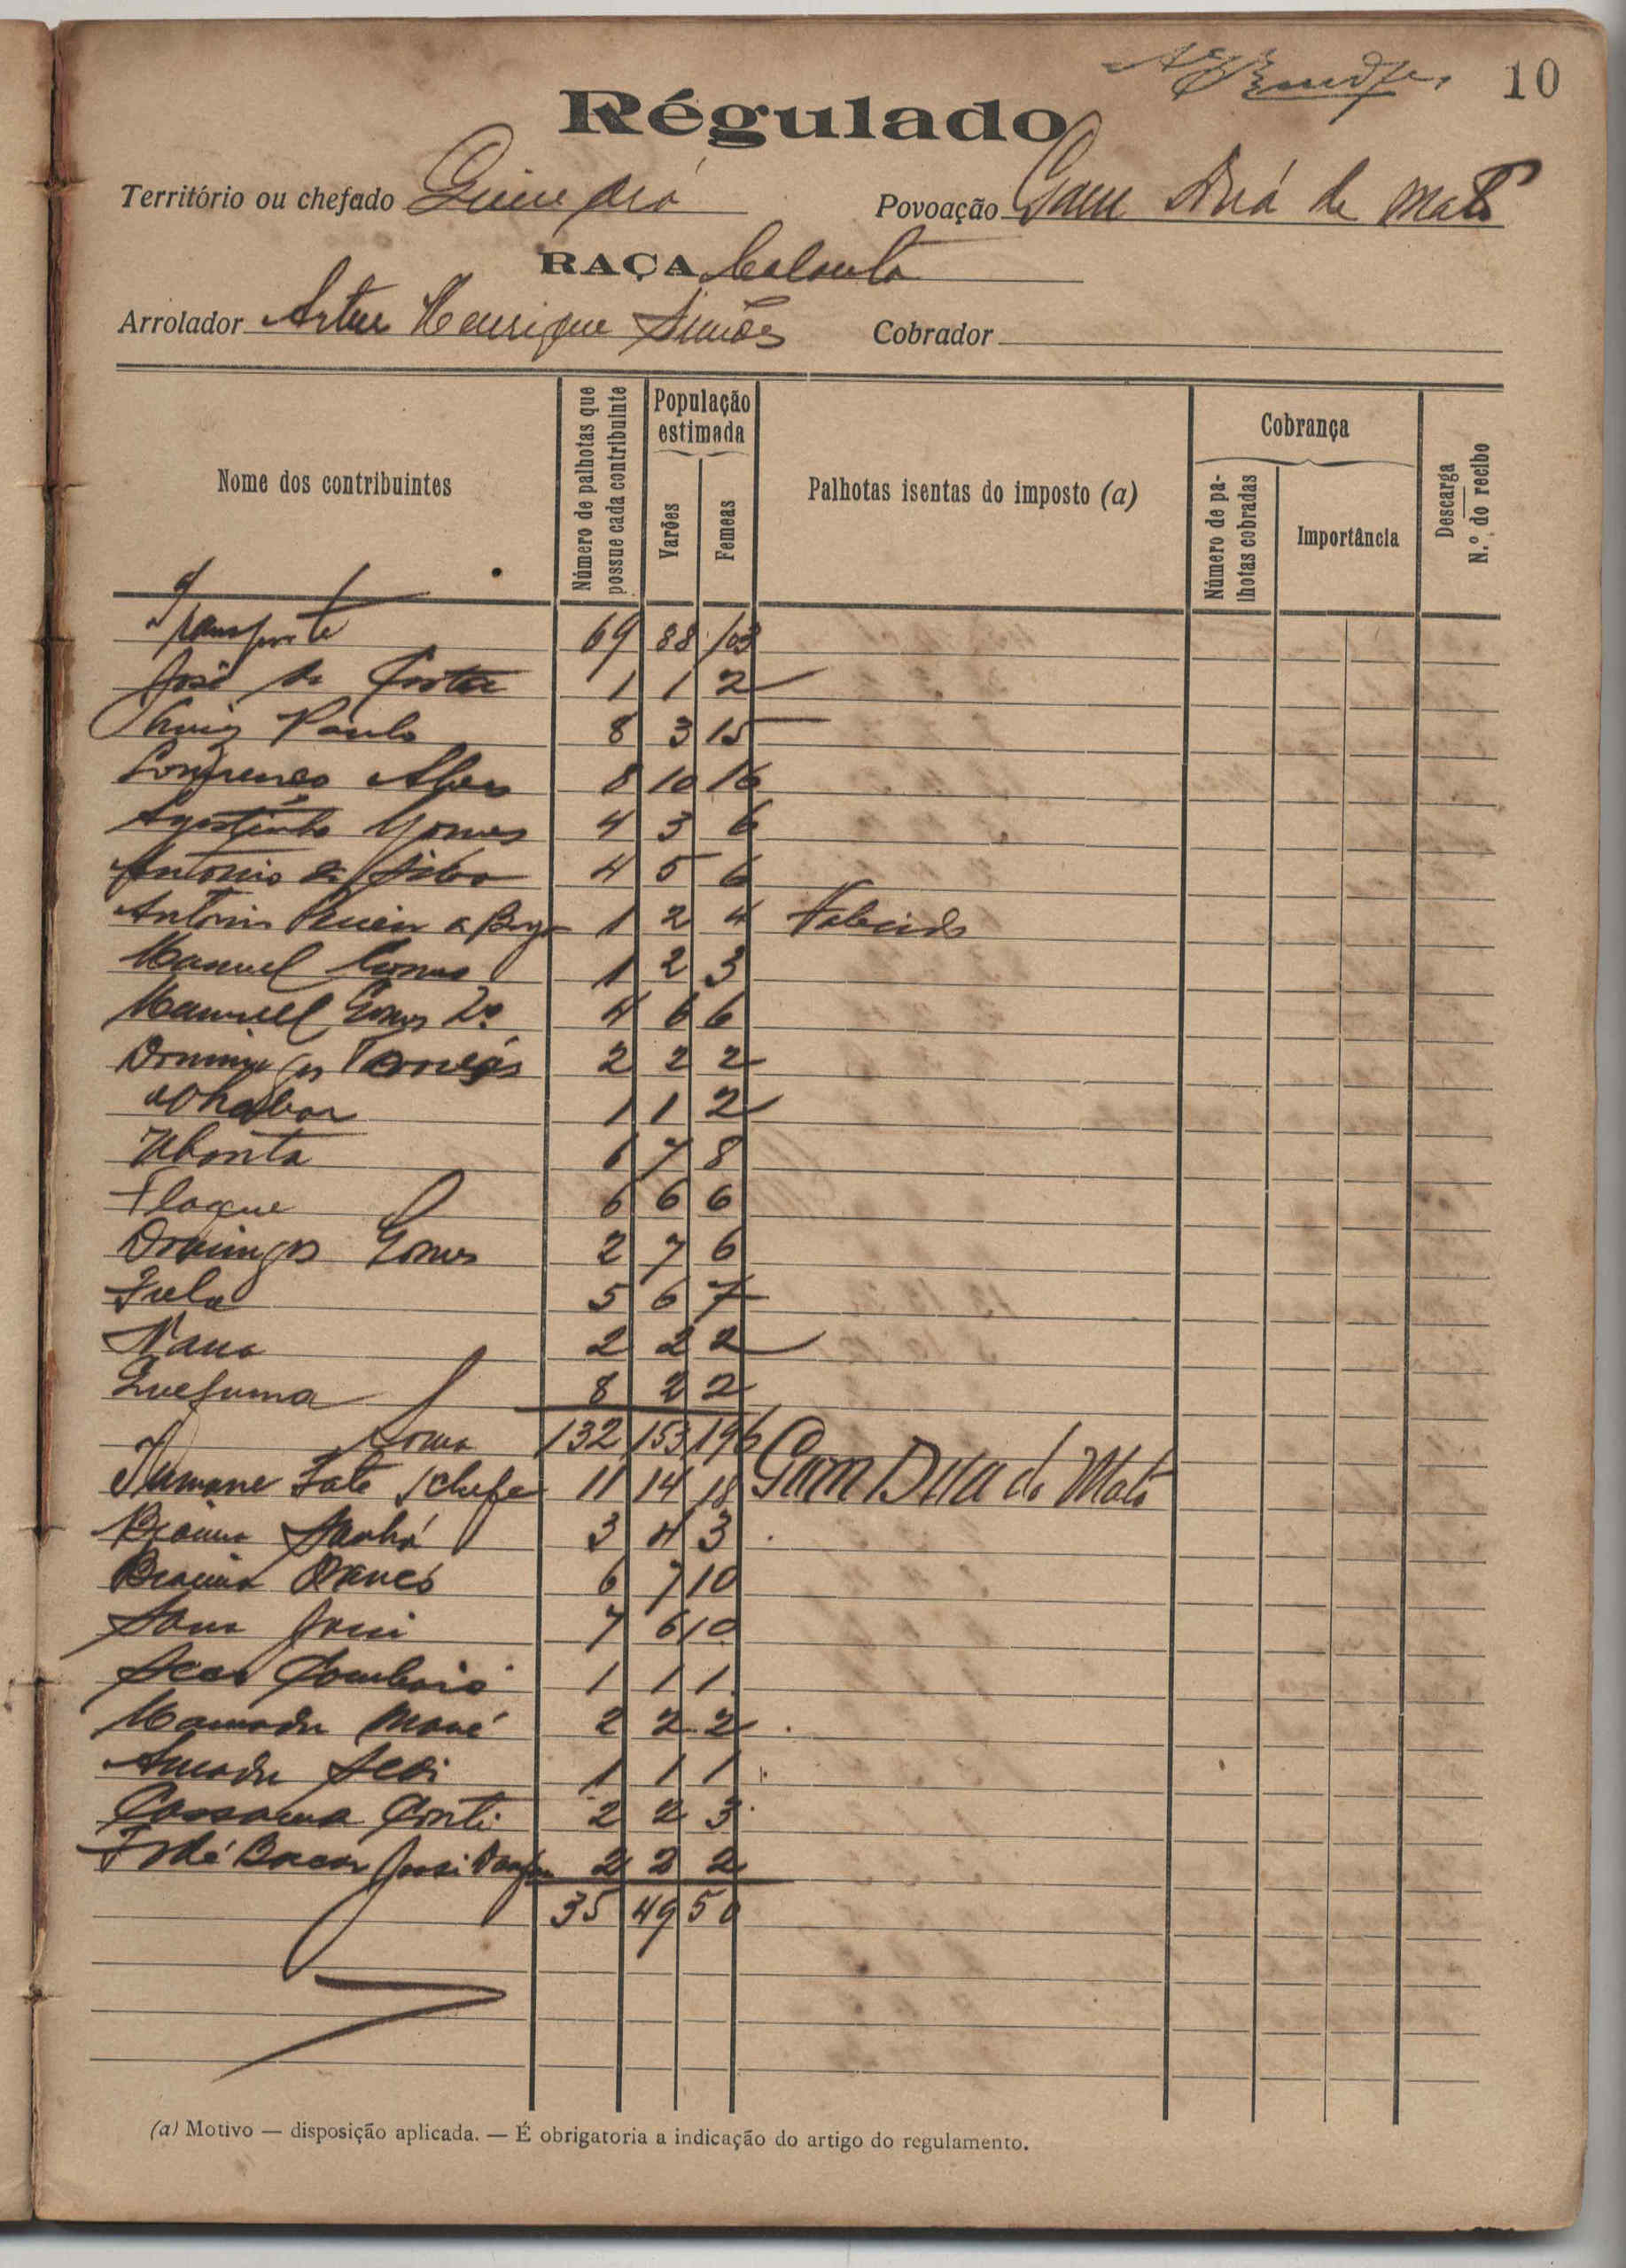 10
Régulado
Território ou chefado
Povoação Gam Duá de Mato
RAÇA
Arrolador Artur Henrique Simões Cobrador
Nome dos contribuintes
Número de palhotas que possue cada contribuinte
População estimada
Varões
Femeas
Palhotas isentas do imposto (a)
Cobrança
Número de palhotas cobradas
Importância
Descarga
N.º do recibo
Transporte 69 88 103
José da Costa 1 1 2
Luiz Paulo 8 3 15
Lourenço Alves 8 10 16
Agostinho Gomes 4 3 6
Antonio da Silva 4 5 6
Antonio 1 2 4 Falecido
Manuel Gomes 1 2 3
Manuel Gomes 2º 4 6 6
Domingos 2 2 2
1 1 2
Ubonta 6 7 8
Flaque 6 6 6
Domingos Gomes 2 7 6
Fula 5 6 7
Nana 2 2 2
Quefuma 8 2 2
Soma 132 153 196 Gam Dua do Mato
Fate /chefe 11 14 18
Braima Sanhá 3 4 3
Braima 6 7 10
Sana 7 6 10
1 1 1
Mamadu Mané 2 2 2
Amadu Sedi 1 1 1
Cassama Conti 2 2 3
Fodé Bacar 2 2 2
35 49 50
(a) Motivo — disposição aplicada. — É obrigatoria a indicação do artigo do regulamento.